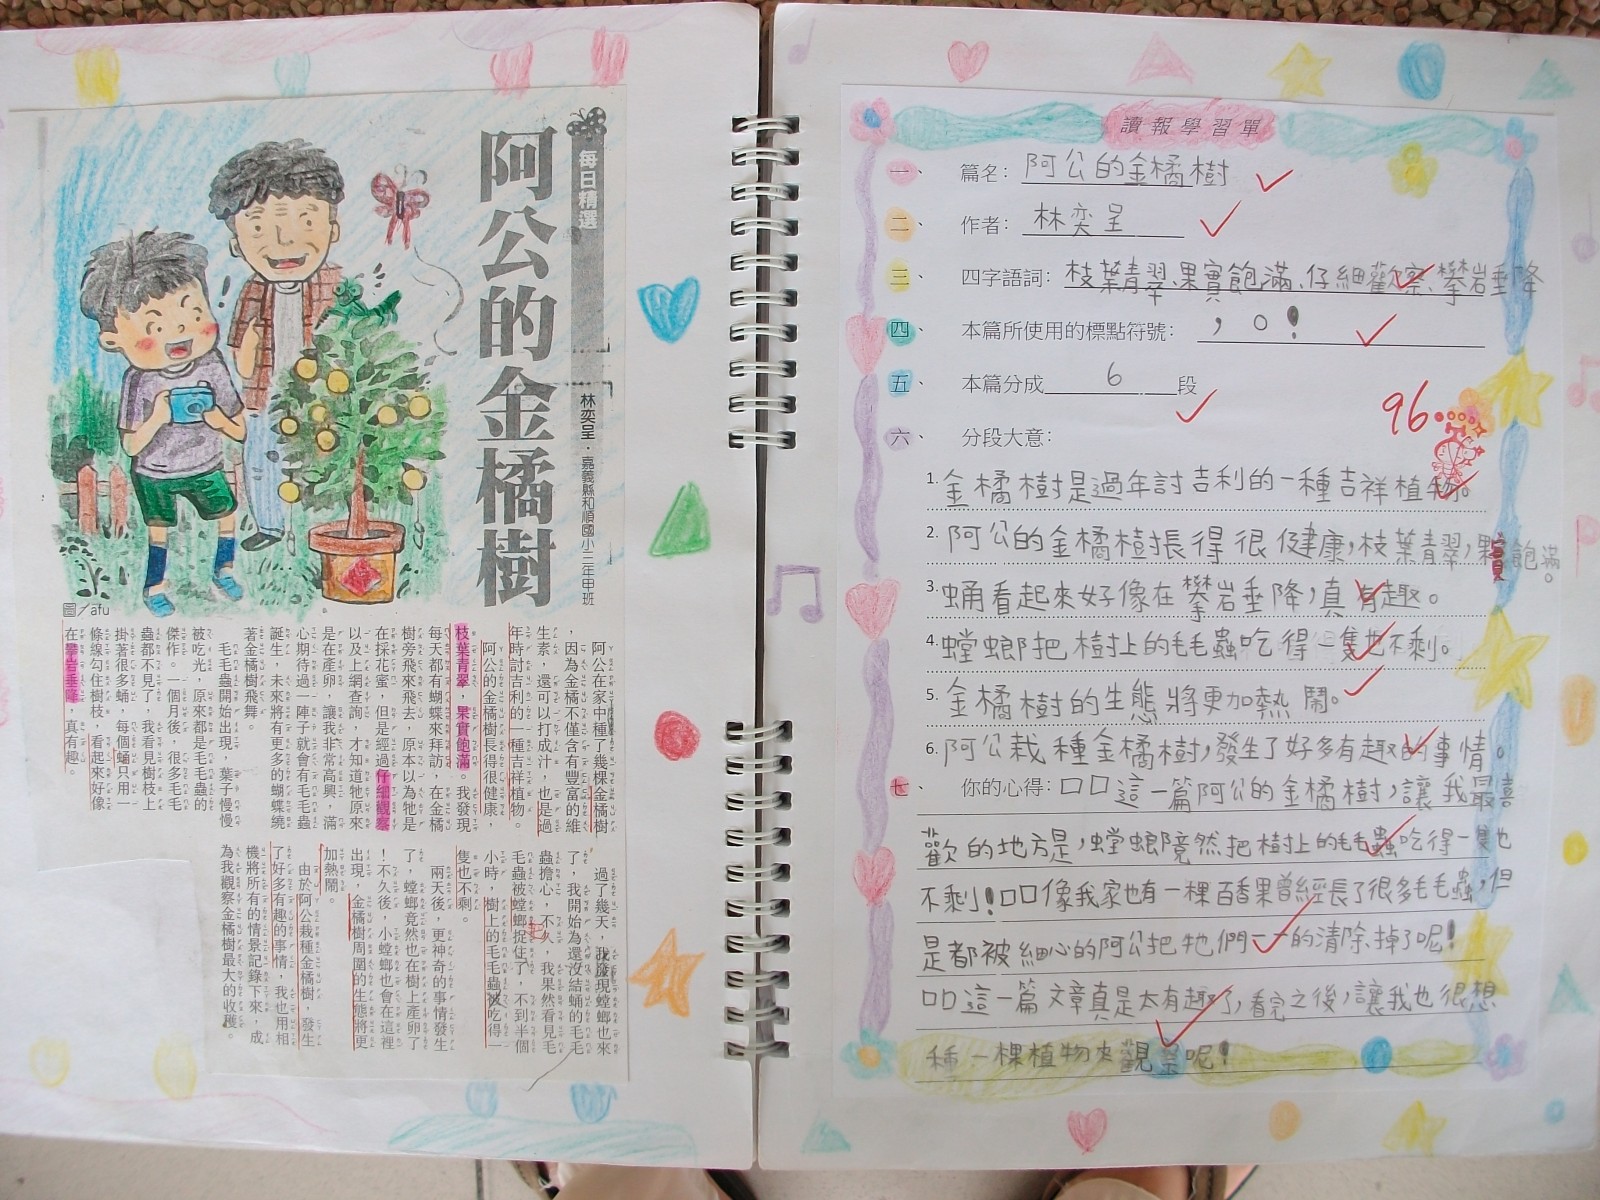 每日精選
阿公的金橘樹
林奕呈．嘉義縣和順國小三年甲班
圖／afu
阿公在家中種了幾棵金橘樹
，因為金橘不僅含有豐富的維
生素，還可以打成汁，也是過
年時討吉利的一種吉祥植物。
阿公的金橘樹長得很健康，
枝葉青翠，果實飽滿。我發現
每天都有蝴蝶來拜訪，在金橘
樹旁飛來飛去，原本以為牠是
在採花蜜，但是經過仔細觀察
以及上網查詢，才知道牠原來
是在產卵，讓我非常高興，滿
心期待過一陣子就會有毛毛蟲
誕生，未來將有更多的蝴蝶繞
著金橘樹飛舞。
毛毛蟲開始出現，葉子慢慢
被吃光，原來都是毛毛蟲的
傑作。一個月後，很多毛毛
蟲都不見了，我看見樹枝上
掛著很多蛹，每個蛹只用一
條線勾住樹枝，看起來好像
在攀岩垂降，真有趣。
過了幾天，我發現螳螂也來
了，我開始為還沒結蛹的毛毛
蟲擔心，不久，我果然看見毛
毛蟲被螳螂捉住了，不到半個
小時，樹上的毛毛蟲被吃得一
隻也不剩。
兩天後，更神奇的事情發生
了，螳螂竟然也在樹上產卵了
！不久後，小螳螂也會在這裡
出現，金橘樹周圍的生態將更
加熱鬧。
由於阿公栽種金橘樹，發生
了好多有趣的事情，我也用相
機將所有的情景記錄下來，成
為我觀察金橘樹最大的收穫。
讀報學習單
一、 篇名：阿公的金橘樹
二、 作者：林奕呈
三、 四字語詞：枝葉青翠、果實飽滿、仔細觀察、攀岩垂降
四、 本篇所使用的標點符號：，。！
五、 本篇分成6段
96
六、 分段大意：
1. 金橘樹是過年討吉利的一種吉祥植物。
2. 阿公的金橘樹長得很健康，枝葉青翠，果實飽滿。
3. 蛹看起來好像在攀岩垂降，真有趣。
4. 螳螂把樹上的毛毛蟲吃得一隻也不剩。
5. 金橘樹的生態將更加熱鬧。
6. 阿公栽種金橘樹，發生了好多有趣的事情。
七、 你的心得：口口這一篇阿公的金橘樹，讓我最喜
歡的地方是，螳螂竟然把樹上的毛毛蟲吃得一隻也
不剩！口口像我家也有一棵百香果曾經長了很多毛毛蟲，但
是都被細心的阿公把牠們一一的清除掉了呢！
口口這一篇文章真是太有趣了，看完之後，讓我也很想
種一棵植物來觀察呢！